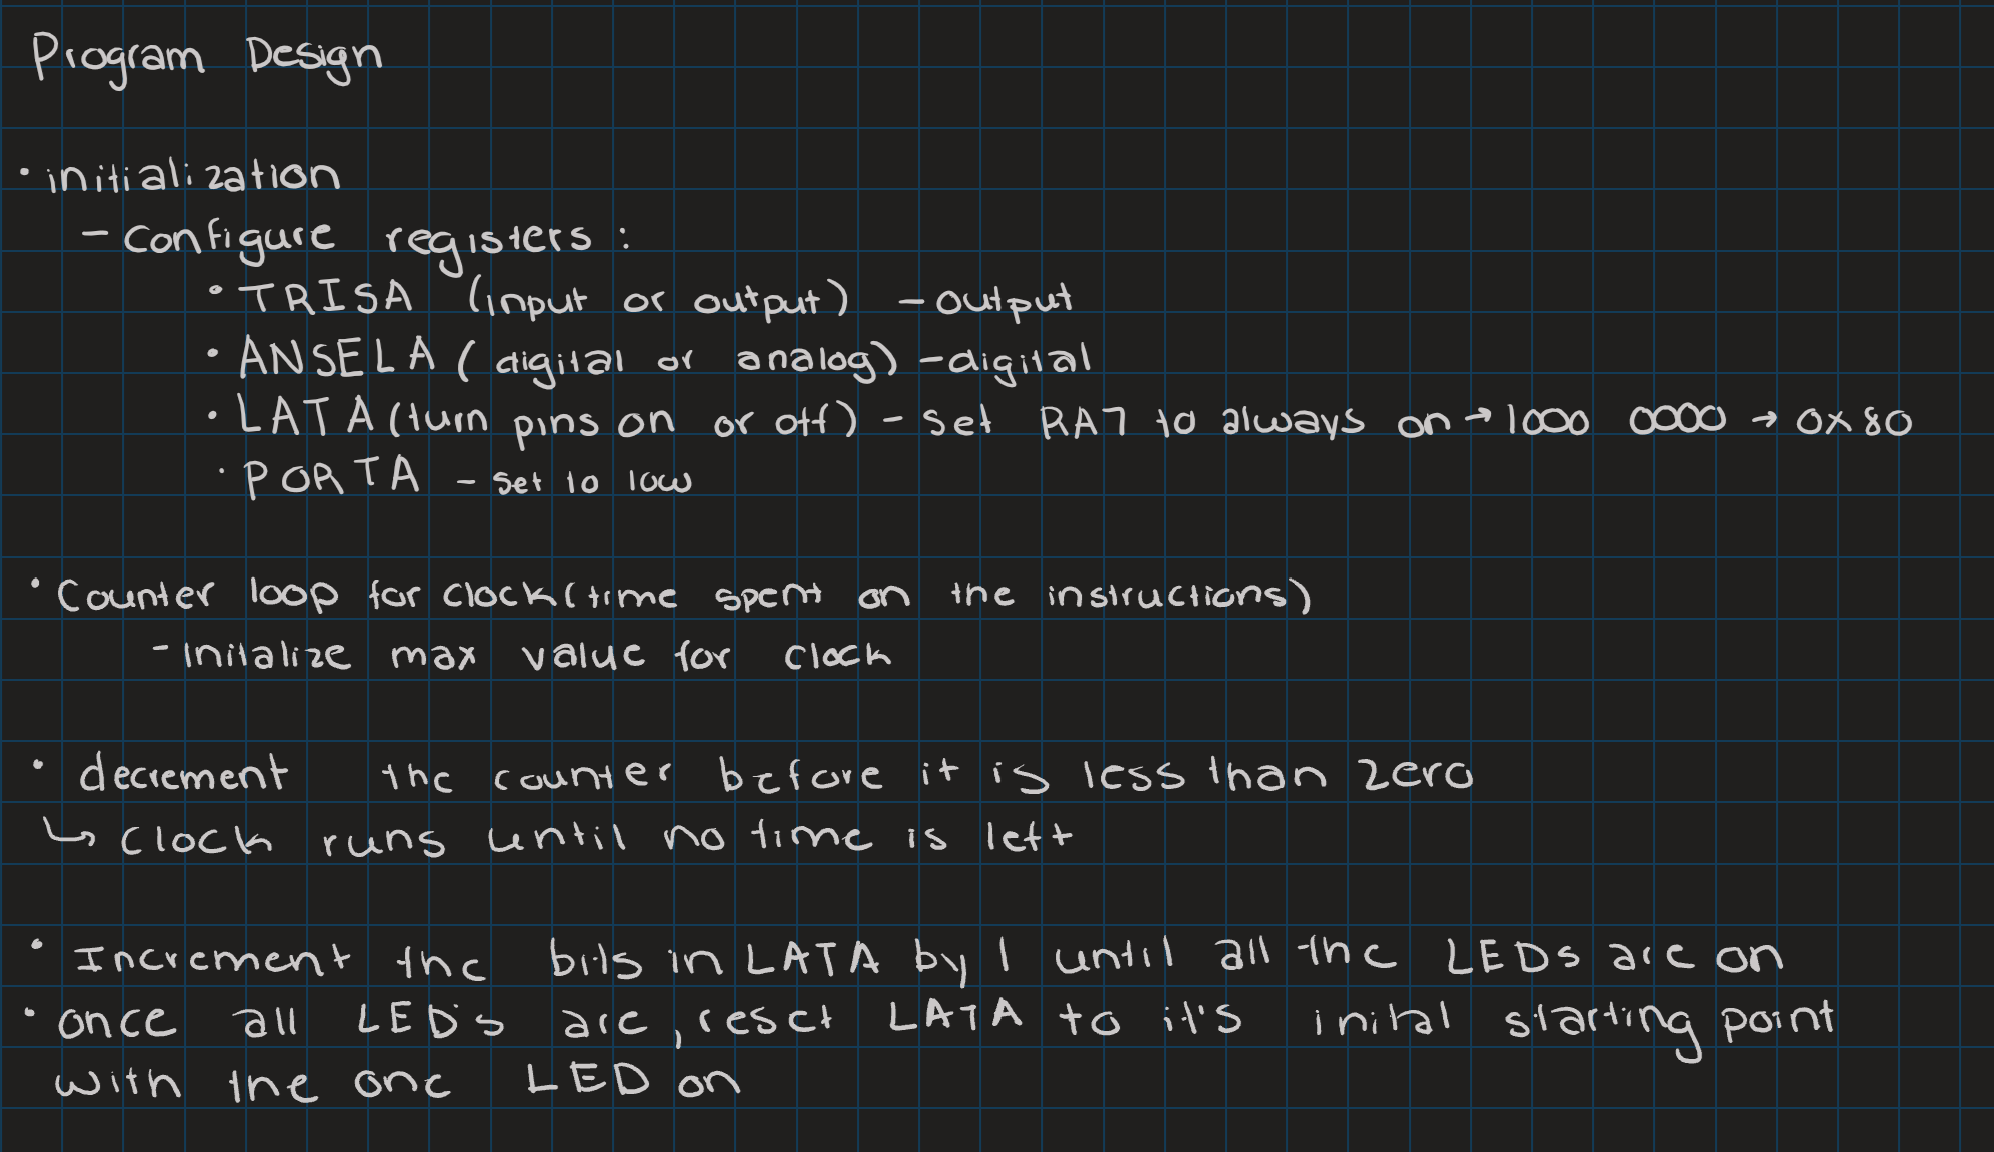 Program Design
• initialization
- Configure registers:
• TRISA (input or output) - output
• ANSELA (digital or analog) - digital
• LATA (turn pins on or off) - set RA7 to always on → 1000 0000 → 0x80
• PORTA - set to low
• Counter loop for clock (time spent on the instructions)
- Initalize max value for clock
• decrement the counter before it is less than zero
↳ clock runs until no time is left
• Increment the bits in LATA by 1 until all the LEDs are on
• once all LED's are, reset LATA to it's inital starting point
with the one LED on